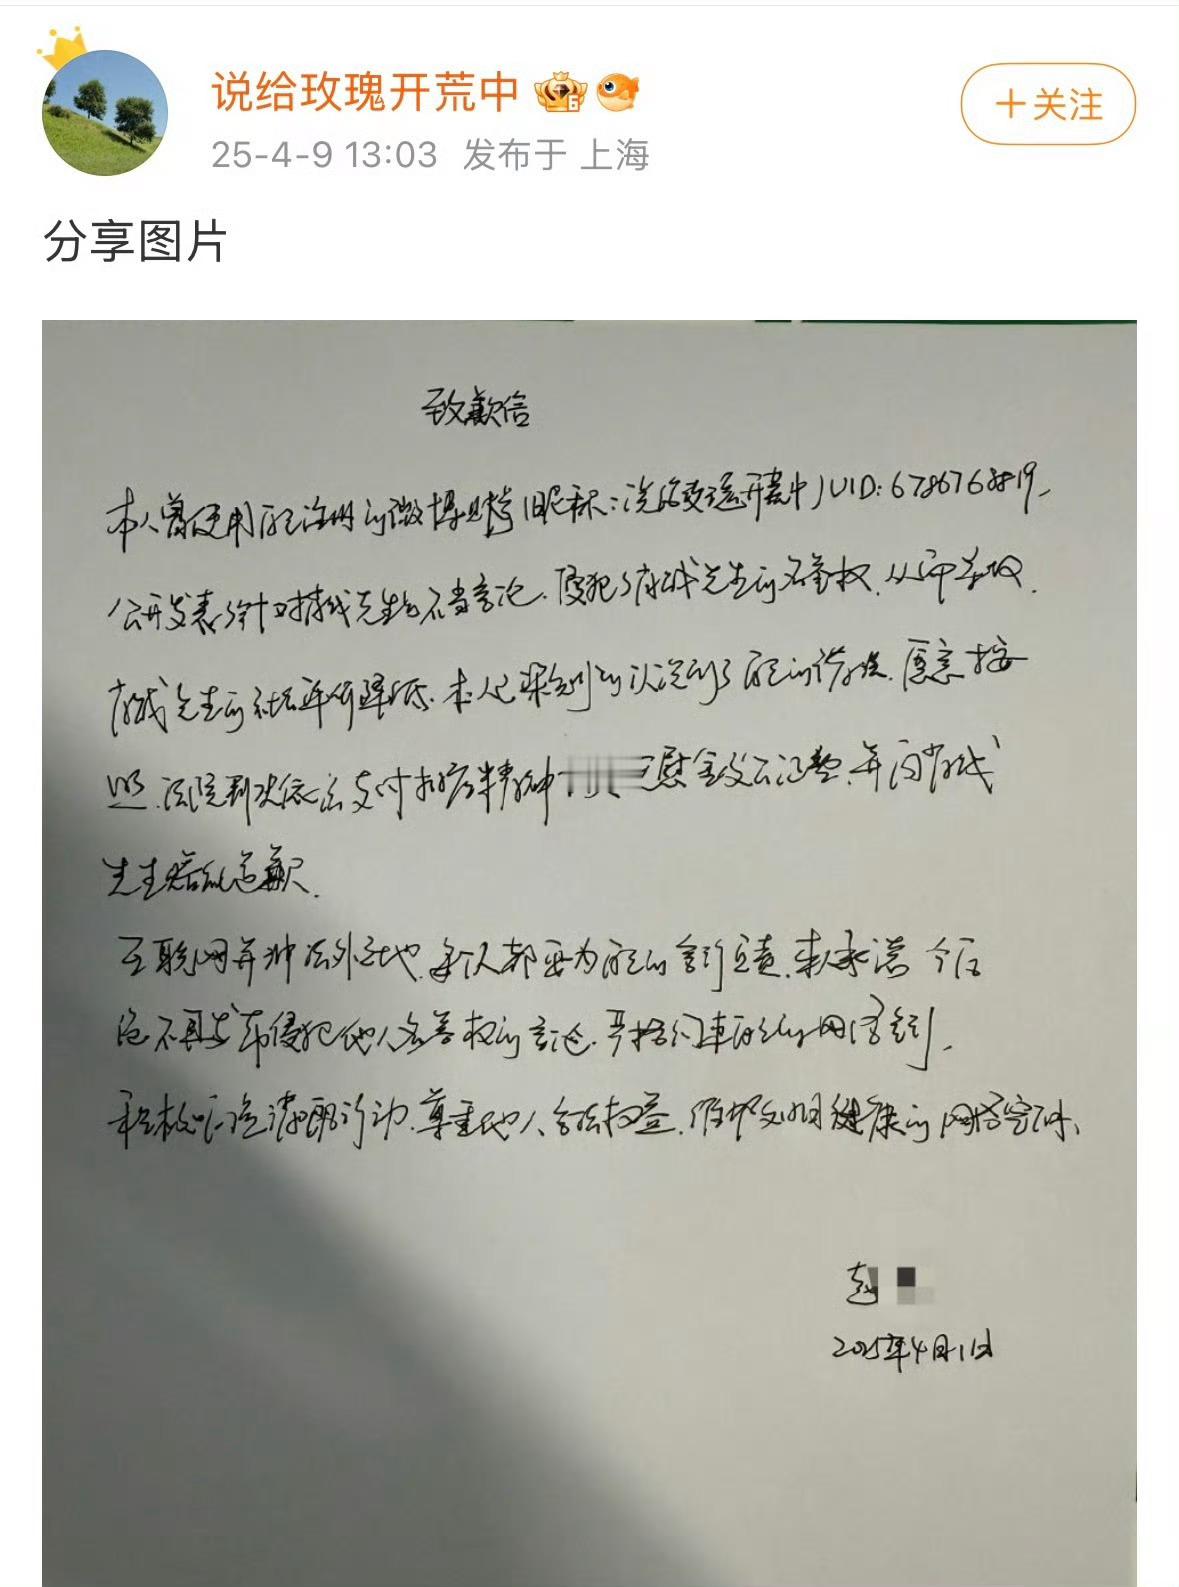 说给玫瑰开荒中
+关注
25-4-9 13:03 发布于 上海
分享图片
致歉信
本人曾使用自己注册的微博账号(昵称:说给玫瑰开荒中)UID:6786768819,
公开发表了针对 先生的不当言论,侵犯了 先生的名誉权,从而导致
先生的社会评价降低,本人已深刻的认识到了自己的错误,愿意按
照法院判决依法支付 精神 慰金及公证费,并向
先生 道歉.
互联网并非法外之地,每个人都要为自己的言行负责,本人承诺今后
绝不再发布侵犯他人名誉权的言论,严格约束自己的网络言行,
积极 行动,尊重他人合法权益,维护文明健康的网络空间.
赵
2025年4月1日